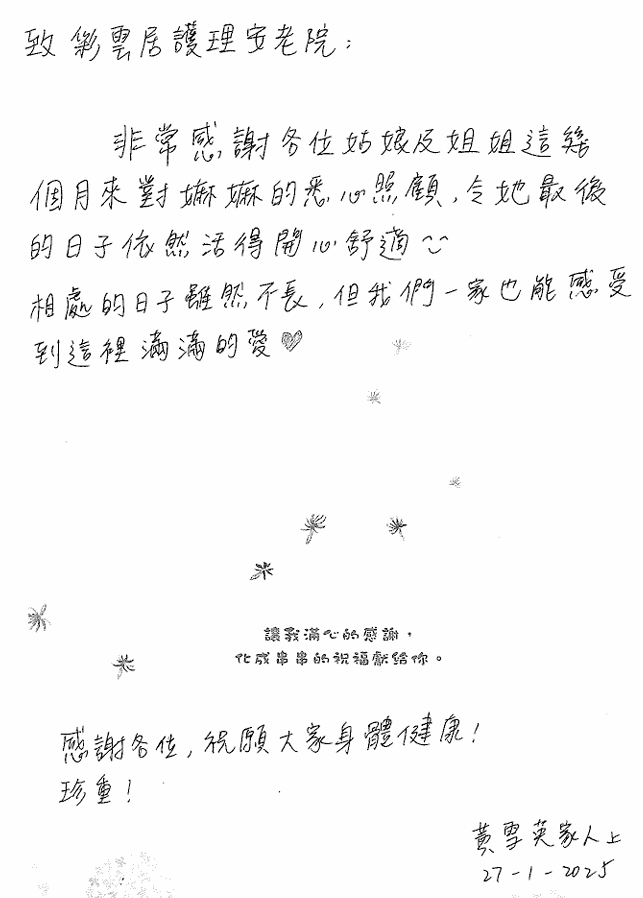 致彩雲居護理安老院：
非常感謝各位姑娘及姐姐這幾
個月來對嫲嫲的悉心照顧，令她最後
的日子依然活得開心舒適
相處的日子雖然不長，但我們一家也能感受
到這裡滿滿的愛♡
讓我滿心的感謝，
化成串串的祝福獻給你。
感謝各位，祝願大家身體健康！
珍重！
黃雪英家人上
27-1-2025